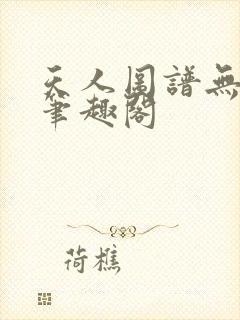 天人圖譜無
筆趣閣
荷樵